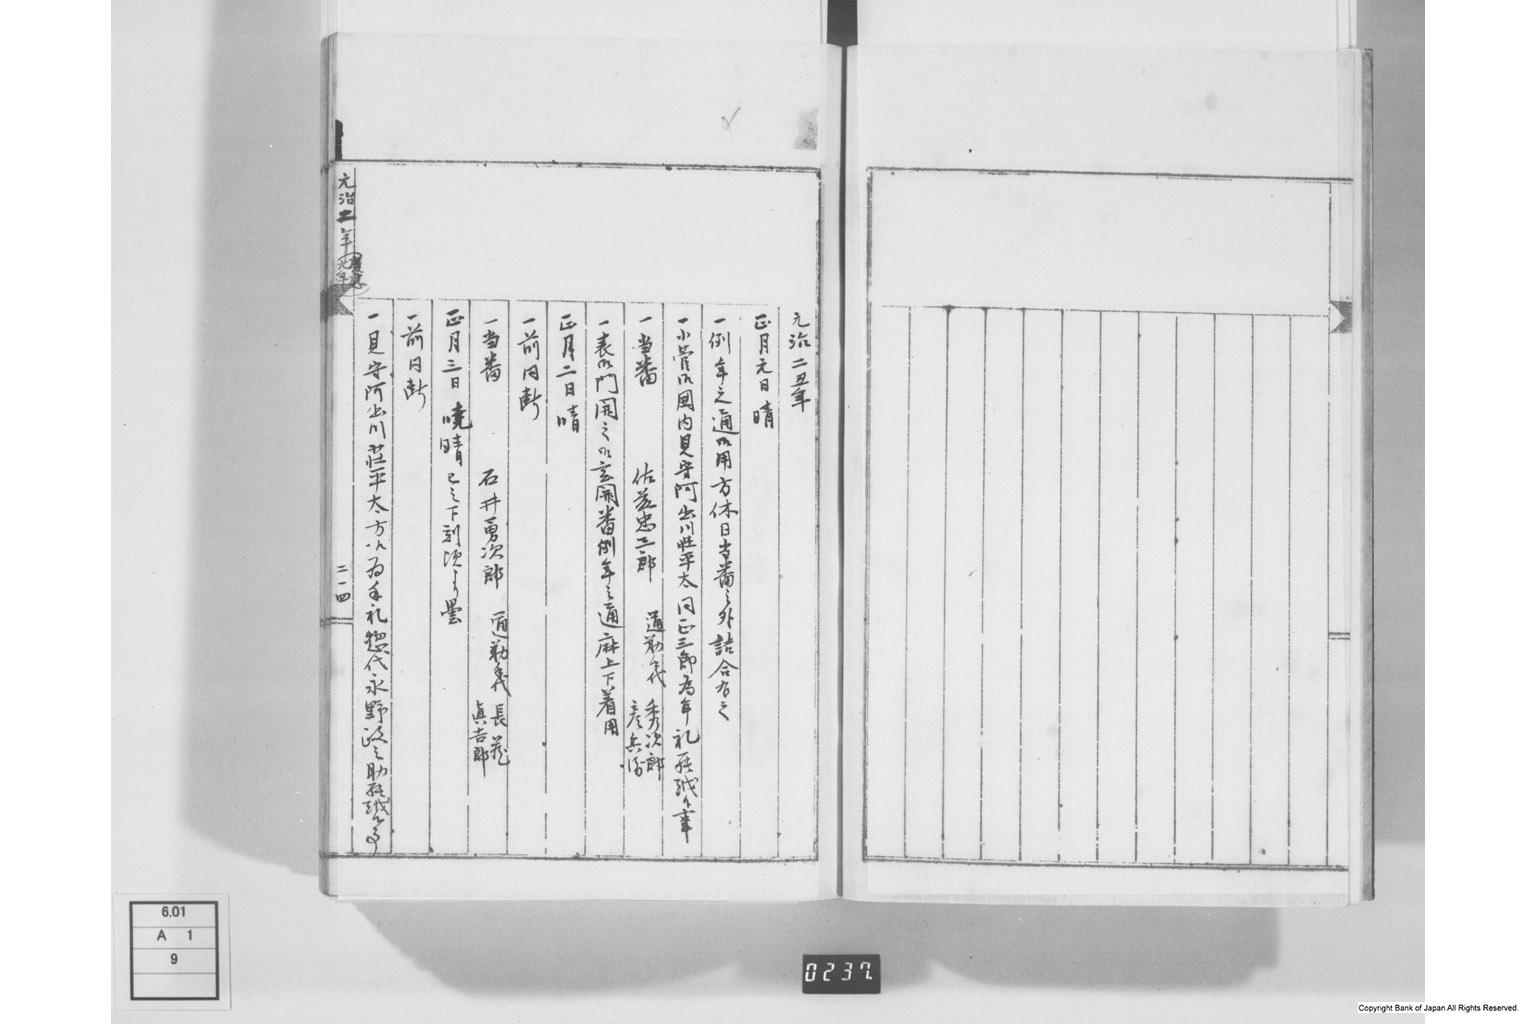 元治二丑年
正月元日 晴
一例年之通御用方休日当番之外詰合有之
一小菅御囲内見守阿出川荘平太同正三郎為年礼罷越候事
一当番 佐藤忠三郎 通勤年代 秀次郎 彦兵衛
一表御門開之御玄関番例年之通麻上下着用
正月二日 晴
一前同断
一当番 石井勇次郎 通勤年代 長蔵 真吉郎
正月三日 暁晴 巳之下刻頃より曇
一前同断
一見守阿出川荘平太方より為年礼惣代永野政之助罷越候事
元治二年
慶応元年
二一四
6.01
A 1
9
0237
Copyright Bank of Japan All Rights Reserved.